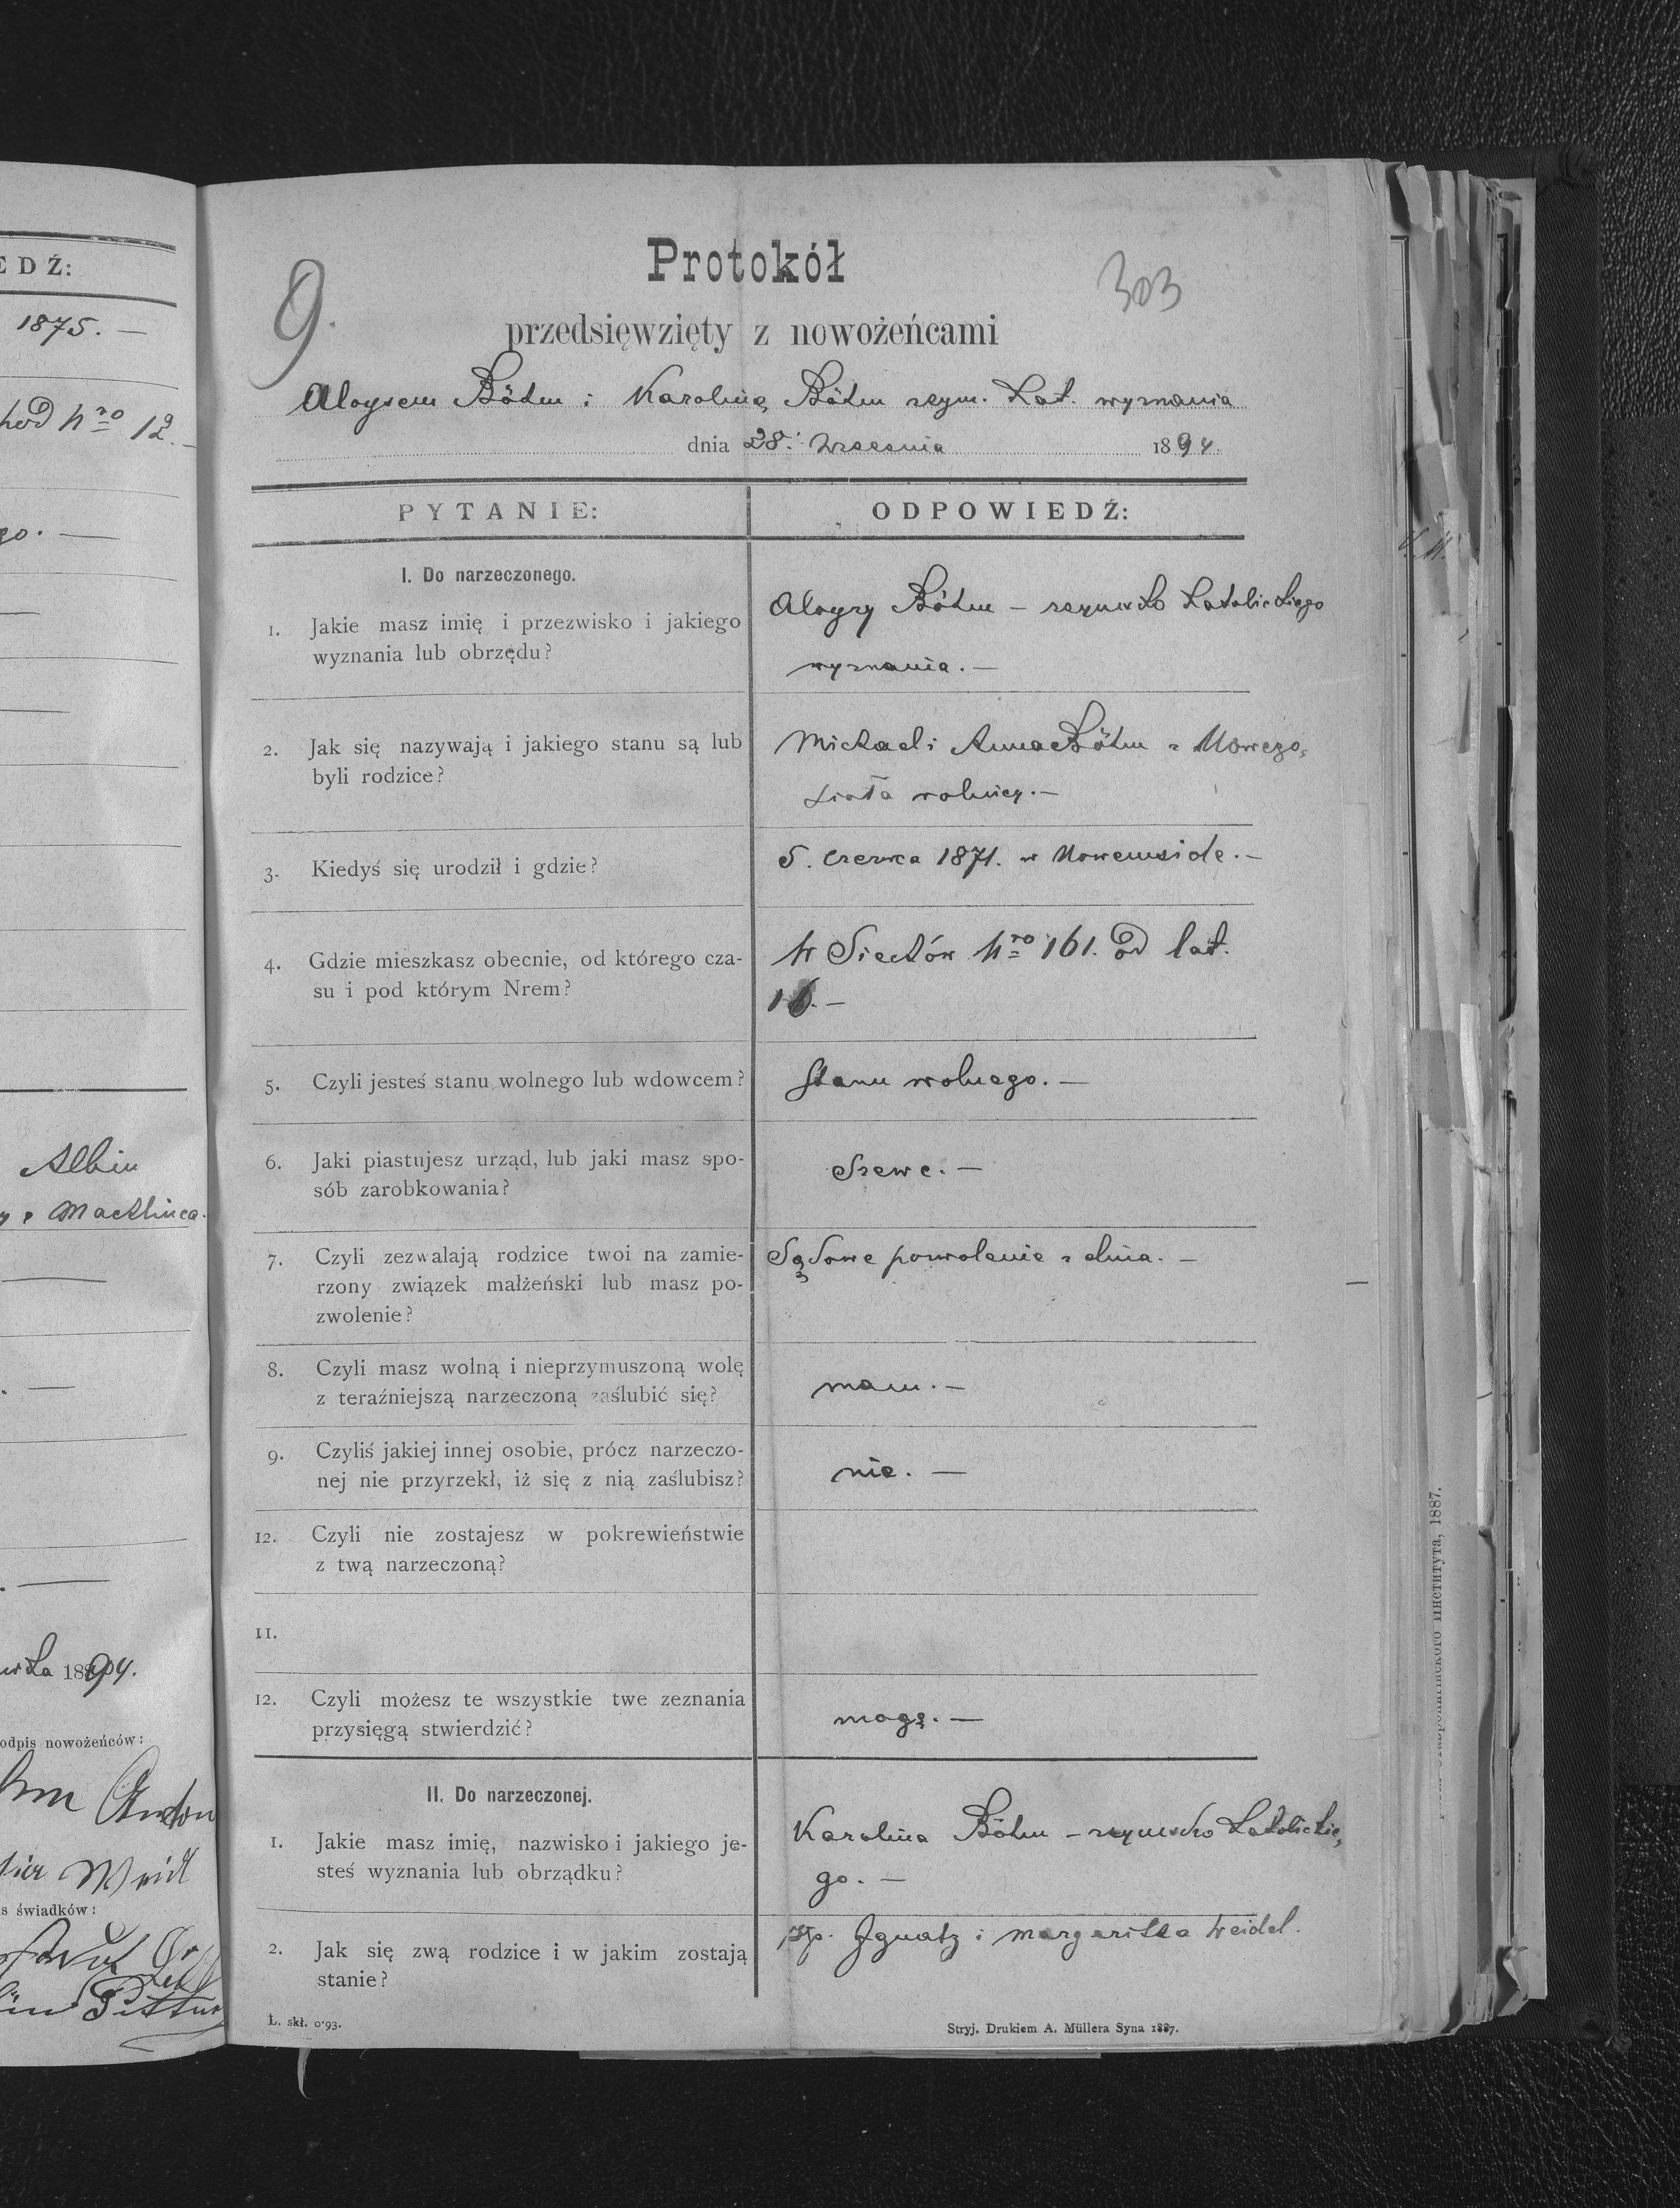 EDŹ:
1875. —
hod Nro 12. –
go. —
Albin
Machlińca.
1894.
odpis nowożeńców:
Anton
s świadków:
9.
303
Protokół
przedsięwzięty z nowożeńcami
Aloysem Böhm i Karoliną Böhm rzym. kat. wyznania
dnia 28. Września 1894.
PYTANIE:
ODPOWIEDŹ:
I. Do narzeczonego.
1. Jakie masz imię i przezwisko i jakiego
wyznania lub obrzędu?
Aloyzy Böhm – rzymsko katolickiego
wyznania. —
2. Jak się nazywają i jakiego stanu są lub
byli rodzice?
Michael i Anna Böhm z Nowego,
sioła rolnicy. —
3. Kiedyś się urodził i gdzie?
5. czerwca 1871. w Nowemsiole. —
4. Gdzie mieszkasz obecnie, od którego cza-
su i pod którym Nrem?
W Siechów Nro 161. od lat.
5. Czyli jesteś stanu wolnego lub wdowcem?
Stanu wolnego. —
6. Jaki piastujesz urząd, lub jaki masz spo-
sób zarobkowania?
Szewc. —
7. Czyli zezwalają rodzice twoi na zamie-
rzony związek małżeński lub masz po-
zwolenie?
Sądowe pozwolenie z dnia. —
8. Czyli masz wolną i nieprzymuszoną wolę
z teraźniejszą narzeczoną zaślubić się?
mam. —
9. Czyliś jakiej innej osobie, prócz narzeczo-
nej nie przyrzekł, iż się z nią zaślubisz?
nie. —
12. Czyli nie zostajesz w pokrewieństwie
z twą narzeczoną?
11.
12. Czyli możesz te wszystkie twe zeznania
przysięgą stwierdzić?
mogę. —
II. Do narzeczonej.
1. Jakie masz imię, nazwisko i jakiego je-
steś wyznania lub obrządku?
Karolina Böhm – rzymsko katolickie,
go. —
2. Jak się zwą rodzice i w jakim zostają
stanie?
Ignatz i Margaritha Weidel.
L. skł. 0·93.
Stryj. Drukiem A. Müllera Syna 1887.
института, 1887.